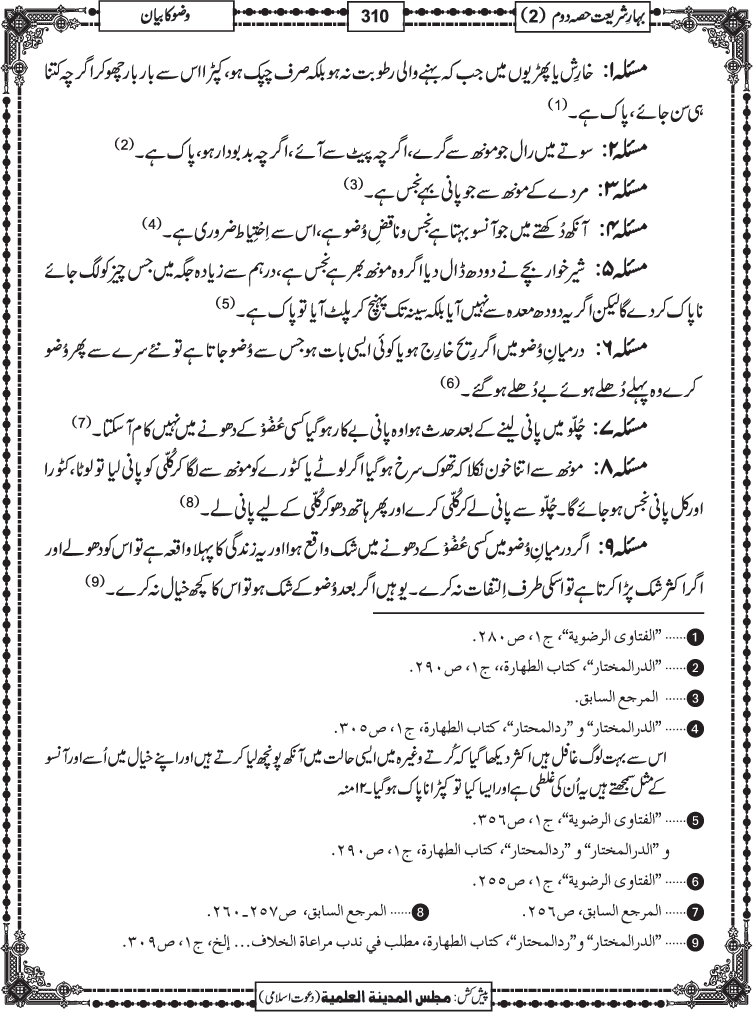 بہارِ شریعت حصہ دوم (2)
310
وضو کا بیان
مسئلہ ۱: خارِش یا پھڑیوں میں جب کہ بہنے والی رطوبت نہ ہو بلکہ صرف چپک ہو، کپڑا اس سے بار بار چھو کر اگرچہ کتنا
ہی سَن جائے، پاک ہے۔(1)
مسئلہ ۲: سوتے میں رال جو مونھ سے گرے، اگرچہ پیٹ سے آئے، اگرچہ بدبودار ہو، پاک ہے۔(2)
مسئلہ ۳: مردے کے مونھ سے جو پانی بہے نجس ہے۔(3)
مسئلہ ۴: آنکھ دُکھتے میں جو آنسو بہتا ہے نجس وناقضِ وُضو ہے، اس سے اِحْتِیاط ضروری ہے۔(4)
مسئلہ ۵: شیر خوار بچے نے دودھ ڈال دیا اگر وہ مونھ بھر ہے نجس ہے، درہم سے زیادہ جگہ میں جس چیز کو لگ جائے
ناپاک کر دے گا لیکن اگر یہ دودھ معدہ سے نہیں آیا بلکہ سینہ تک پہنچ کر پلٹ آیا تو پاک ہے۔(5)
مسئلہ ۶: درمیانِ وُضو میں اگر رِیح خارِج ہو یا کوئی ایسی بات ہو جس سے وُضو جاتا ہے تو نئے سرے سے پھر وُضو
کرے وہ پہلے دُھلے ہوئے بے دُھلے ہوگئے۔(6)
مسئلہ ۷: چُلّو میں پانی لینے کے بعد حدث ہوا وہ پانی بے کار ہو گیا کسی عُضْوْ کے دھونے میں نہیں کام آ سکتا۔(7)
مسئلہ ۸: مونھ سے اتنا خون نکلا کہ تھوک سرخ ہو گیا اگر لوٹے یا کٹورے کو مونھ سے لگا کر کُلّی کو پانی لیا تو لوٹا، کٹورا
اور کل پانی نجس ہو جائے گا۔ چُلّو سے پانی لے کر کُلّی کرے اور پھر ہاتھ دھو کر کُلّی کے لیے پانی لے۔(8)
مسئلہ ۹: اگر درمیانِ وُضو میں کسی عُضْوْ کے دھونے میں شک واقع ہوا اور یہ زندگی کا پہلا واقعہ ہے تو اس کو دھولے اور
اگر اکثر شک پڑا کرتا ہے تو اسکی طرف اِلتفات نہ کرے۔ یوہیں اگر بعد وُضو کے شک ہو تو اس کا کچھ خیال نہ کرے۔(9)
1 ...... "الفتاوی الرضویة"، ج١، ص٢٨٠.
2 ...... "الدرالمختار"، کتاب الطهارة،، ج١، ص٢٩٠.
3 ...... المرجع السابق.
4 ...... "الدرالمختار" و "ردالمحتار"، کتاب الطهارة، ج١، ص٣٠٥.
اس سے بہت لوگ غافل ہیں اکثر دیکھا گیا کہ کُرتے وغیرہ میں ایسی حالت میں آنکھ پونچھ لیا کرتے ہیں اور اپنے خیال میں اُسے اور آنسو
کے مثل سمجھتے ہیں یہ اُن کی غلطی ہے اور ایسا کیا تو کپڑا ناپاک ہو گیا۔ ۱۲ منہ
5 ...... "الفتاوی الرضویة"، ج١، ص٣٥٦.
و "الدرالمختار" و "ردالمحتار"، کتاب الطهارة، ج١، ص٢٩٠.
6 ...... "الفتاوی الرضویة"، ج١، ص٢٥٥.
7 ...... المرجع السابق، ص٢٥٦. 8 ...... المرجع السابق، ص٢٥٧-٢٦٠.
9 ...... "الدرالمختار" و"ردالمحتار"، کتاب الطهارة، مطلب في ندب مراعاة الخلاف... إلخ، ج١، ص٣٠٩.
پیش کش: مجلس المدینة العلمیة (دعوت اسلامی)